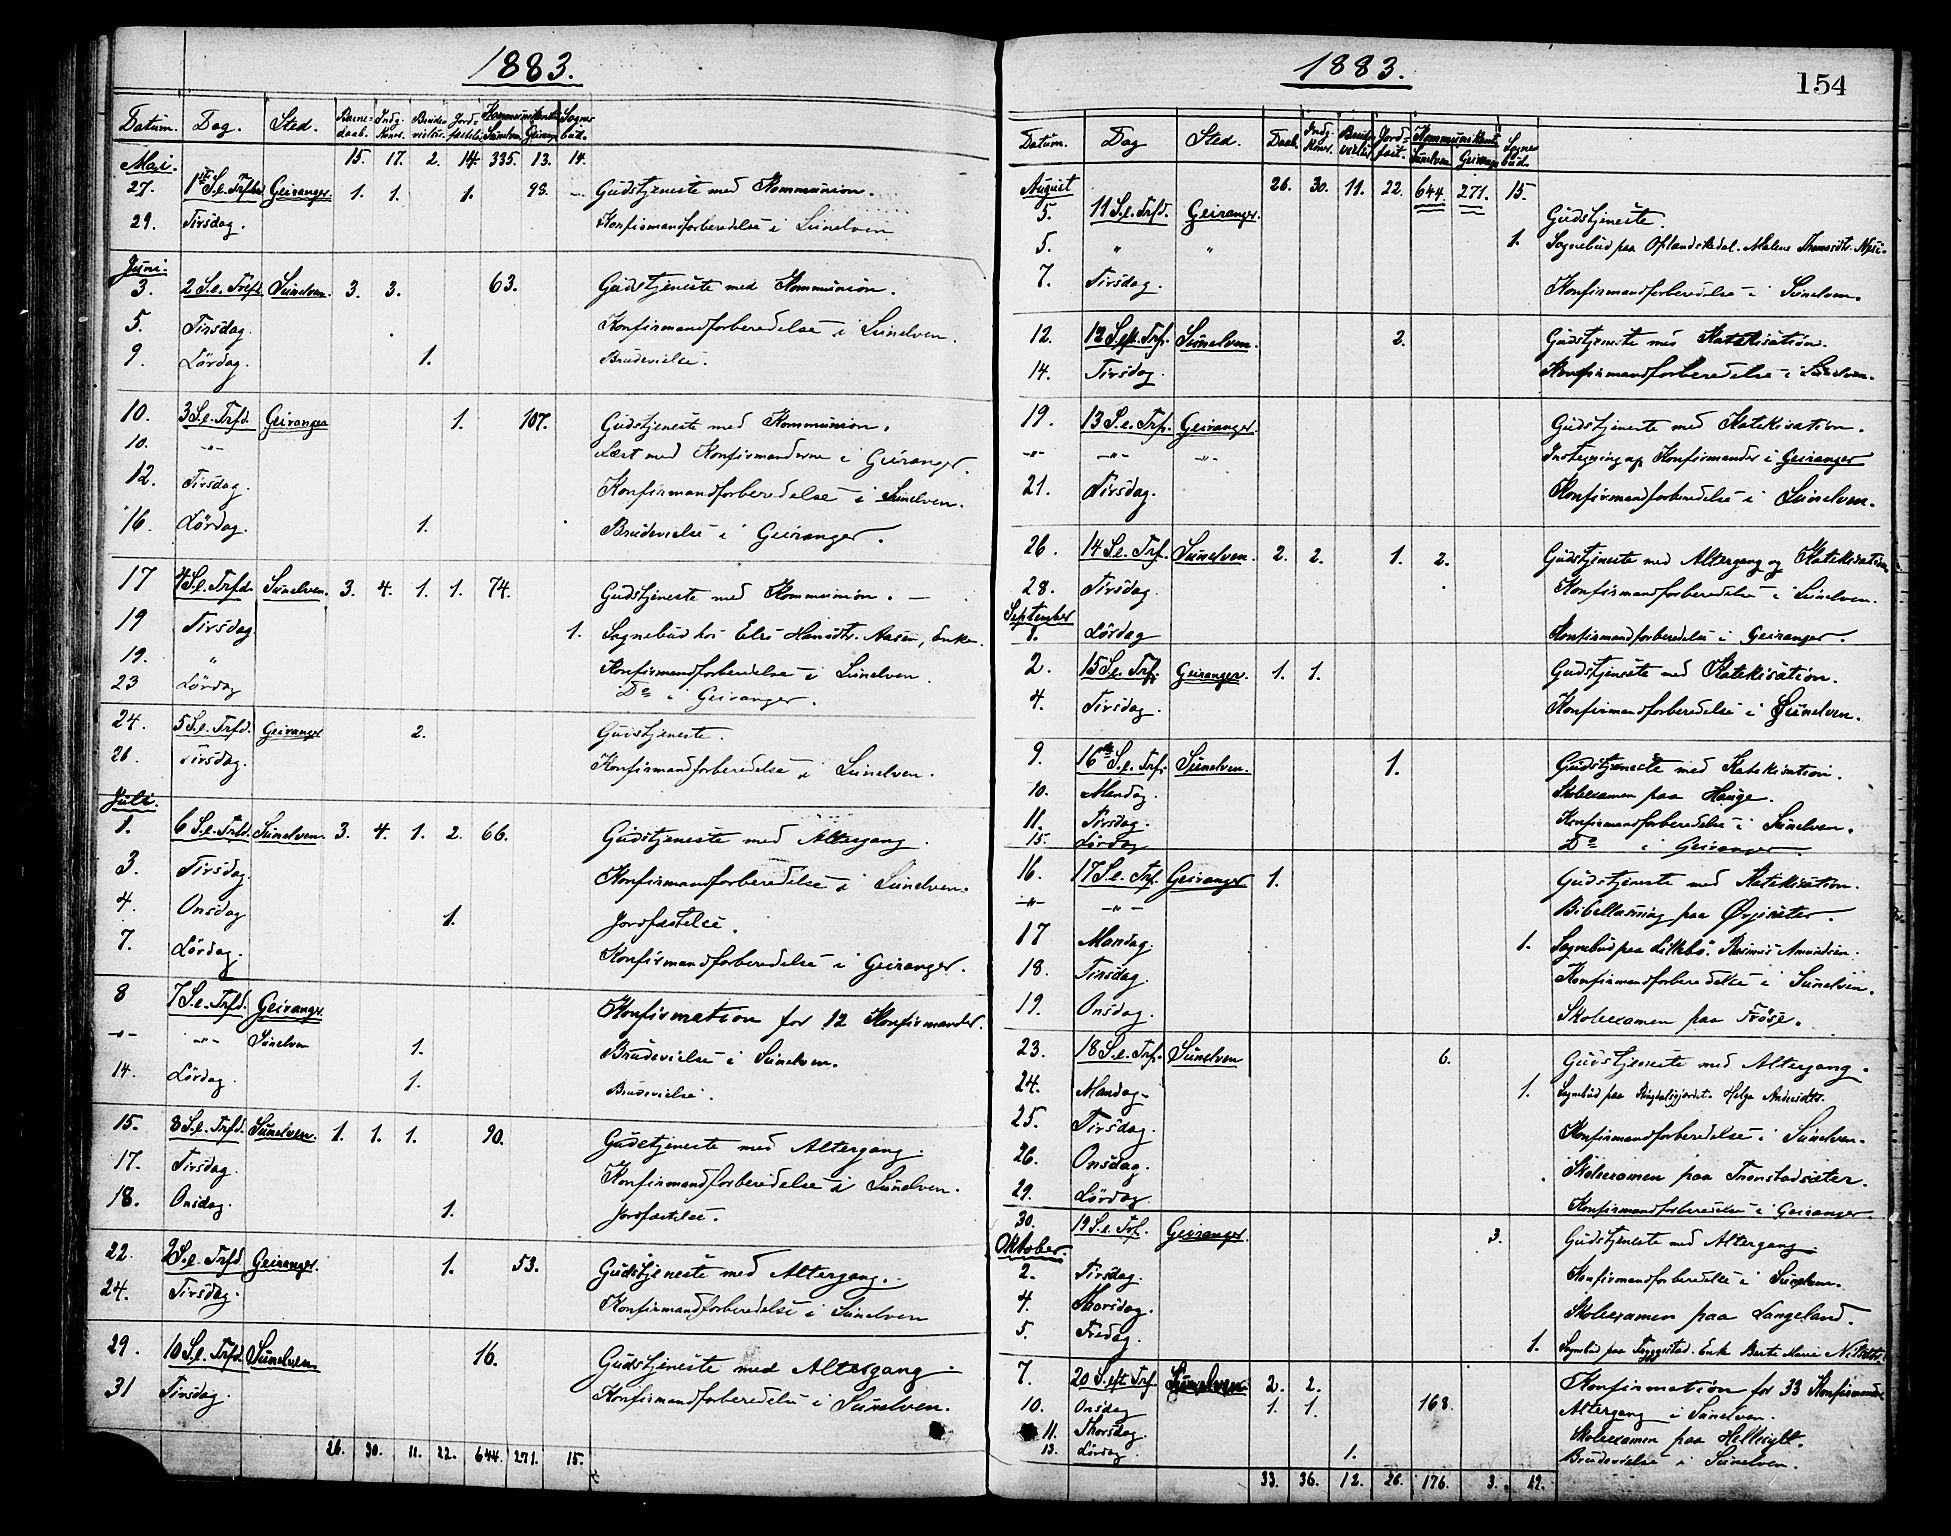 1883.
Datum. Dag. Sted. Barnedaab. Indg. Konv. Brudevielser. Jordfæstelse Kommunikanter Sunelven Geiranger Sognebud.
15. 17. 2. 14. 335. 13. 14.
Mai.
27. 1ste S. e. Trfd. Geiranger. 1. 1. 1. 98. – Gudstjeneste med Kommunion.
29. Tirsdag. Konfirmandforberedelse i Sunelven
Juni.
3. 2 S. e. Trfd. Sunelven. 3. 3. 63. Gudstjeneste med Kommunion.
5. Tirsdag. Konfirmandforberedelse i Sunelven.
9. Lördag. 1. Brudevielse.
10. 3 S. e. Trfd. Geiranger 1. 107. Gudstjeneste med Kommunion.
10. -"- Læst med Konfirmanderne i Geiranger.
12. Tirsdag. Konfirmandforberedelse i Sunelven.
16. Lördag. 1. Brudevielse i Geiranger.
17 4 S. e. Trfd. Sunelven. 3. 4. 1. 1. 74. Gudstjeneste med Kommunion. –
19 Tirsdag 1. Sognebud hos Else Hansdtr. Aasen, Enke.
19. " Konfirmandforberedelse i Sunelven.
23 Lördag Do i Geiranger.
24. 5 S. e. Trfd. Geiranger 2. Gudstjeneste.
26. Tirsdag. Konfirmandforberedelse i Sunelven.
Juli.
1. 6 S. e. Trfd. Sunelven. 3. 4. 1. 2. 66. Gudstjeneste med Altergang.
3. Tirsdag. Konfirmandforberedelse i Sunelven.
4. Onsdag 1. Jordfæstelse.
7. Lördag. Konfirmandforberedelse i Geiranger.
8 7 S. e. Trfd. Geiranger Konfirmation for 12 Konfirmander.
-"- -"- Sunelven 1. Brudevielse i Sunelven.
14. Lördag. 1. Brudevielse.
15. 8 S. e. Trfd. Sunelven. 1. 1. 1. 90. Gudstjeneste med Altergang.
17. Tirsdag. Konfirmandforberedelse i Sunelven.
18. Onsdag. 1. Jordfæstelse.
22. 9 S. e. Trfd Geiranger. 1. 53. Gudstjeneste med Altergang.
24. Tirsdag. Konfirmandforberedelse i Sunelven
29. 10 S. e. Trfd. Sunelven 16. Gudstjeneste med Altergang.
31 Tirsdag. Konfirmandforberedelse i Sunelven.
26. 30. 11. 22. 644. 271. 15.
1883.
154
Datum. Dag Sted. Daab. Indg. Konv. Brudevielser Jordfæst. Kommunikant. Sunelven Geiranger Sognebud.
26. 30. 11. 22. 644. 271. 15.
August
5. 11 S. e. Trfd. Geiranger. Gudstjeneste.
5. " " 1. Sognebud paa Oplandskedal. Malene Thomasdtr.
7. Tirsdag. Konfirmandforberedelse i Sunelven.
12. 12 S. eft. Trf. Sunelven. 2. Gudstjeneste med Katekisation.
14. Tirsdag. Konfirmandforberedelse i Sunelven.
19. 13 S. e. Trf. Geiranger Gudstjeneste med Katekisation.
-"- -"- -"- Indtegning af Konfirmander i Geiranger
21. Tirsdag. Konfirmandforberedelse i Sunelven.
26. 14 S. e. Trf. Sunelven. 2. 2. 1. 2. Gudstjeneste med Altergang og Katekisation
28. Tirsdag. Konfirmandforberedelse i Sunelven.
September
1. Lördag Konfirmandforberedelse i Geiranger.
2. 15 S. e. Trf. Geiranger. 1. 1. Gudstjeneste med Katekisation.
4. Tirsdag. Konfirmandforberedelse i Sunelven.
9. 16de S. e. Trf. Sunelven. 1. Gudstjeneste med Katekisation.
10. Mandag. Skoleexamen paa Hauge.
11. Tirsdag. Konfirmandforberedelse i Sunelven.
15. Lördag Do i Geiranger.
16. 17 S. e. Trf. Geiranger 1. Gudstjeneste med Katekisation.
-"- -"- Bibellæsning paa
17 Mandag. 1. Sognebud paa Lillebö. Rasmus Amundsen.
18. Tirsdag. Konfirmandforberedelse i Sunelven.
19. Onsdag. Skoleexamen paa Fröse.
23. 18 S. e. Trf. Sunelven 6. Gudstjeneste med Altergang.
24. Mandag. 1. Sognebud paa Helga
25. Tirsdag. Konfirmandforberedelse i Sunelven.
26. Onsdag. Skoleexamen paa Tronstadsæter.
29. Lördag. Konfirmandforberedelse i Geiranger.
30. 19 S. e. Trf. Geiranger. 3. Gudstjeneste med Altergang.
Oktober.
2. Tirsdag. Konfirmandforberedelse i Sunelven.
4. Thorsdag. Skoleexamen paa Langeland.
5. Fredag. 1. Sognebud paa Tryggestad. Enke Berte Marie Nilsdtr.
7. 20 S. eft. Trf. Sunelven 2. 2. Konfirmation for 33 Konfirmander
10. Onsdag 1. 1. 168. Altergang i Sunelven.
11. Thorsdag. Skoleexamen paa Hellesylt.
13. Lördag. 1. Brudevielse i Sunelven.
33. 36. 12. 26. 176. 3. 19.